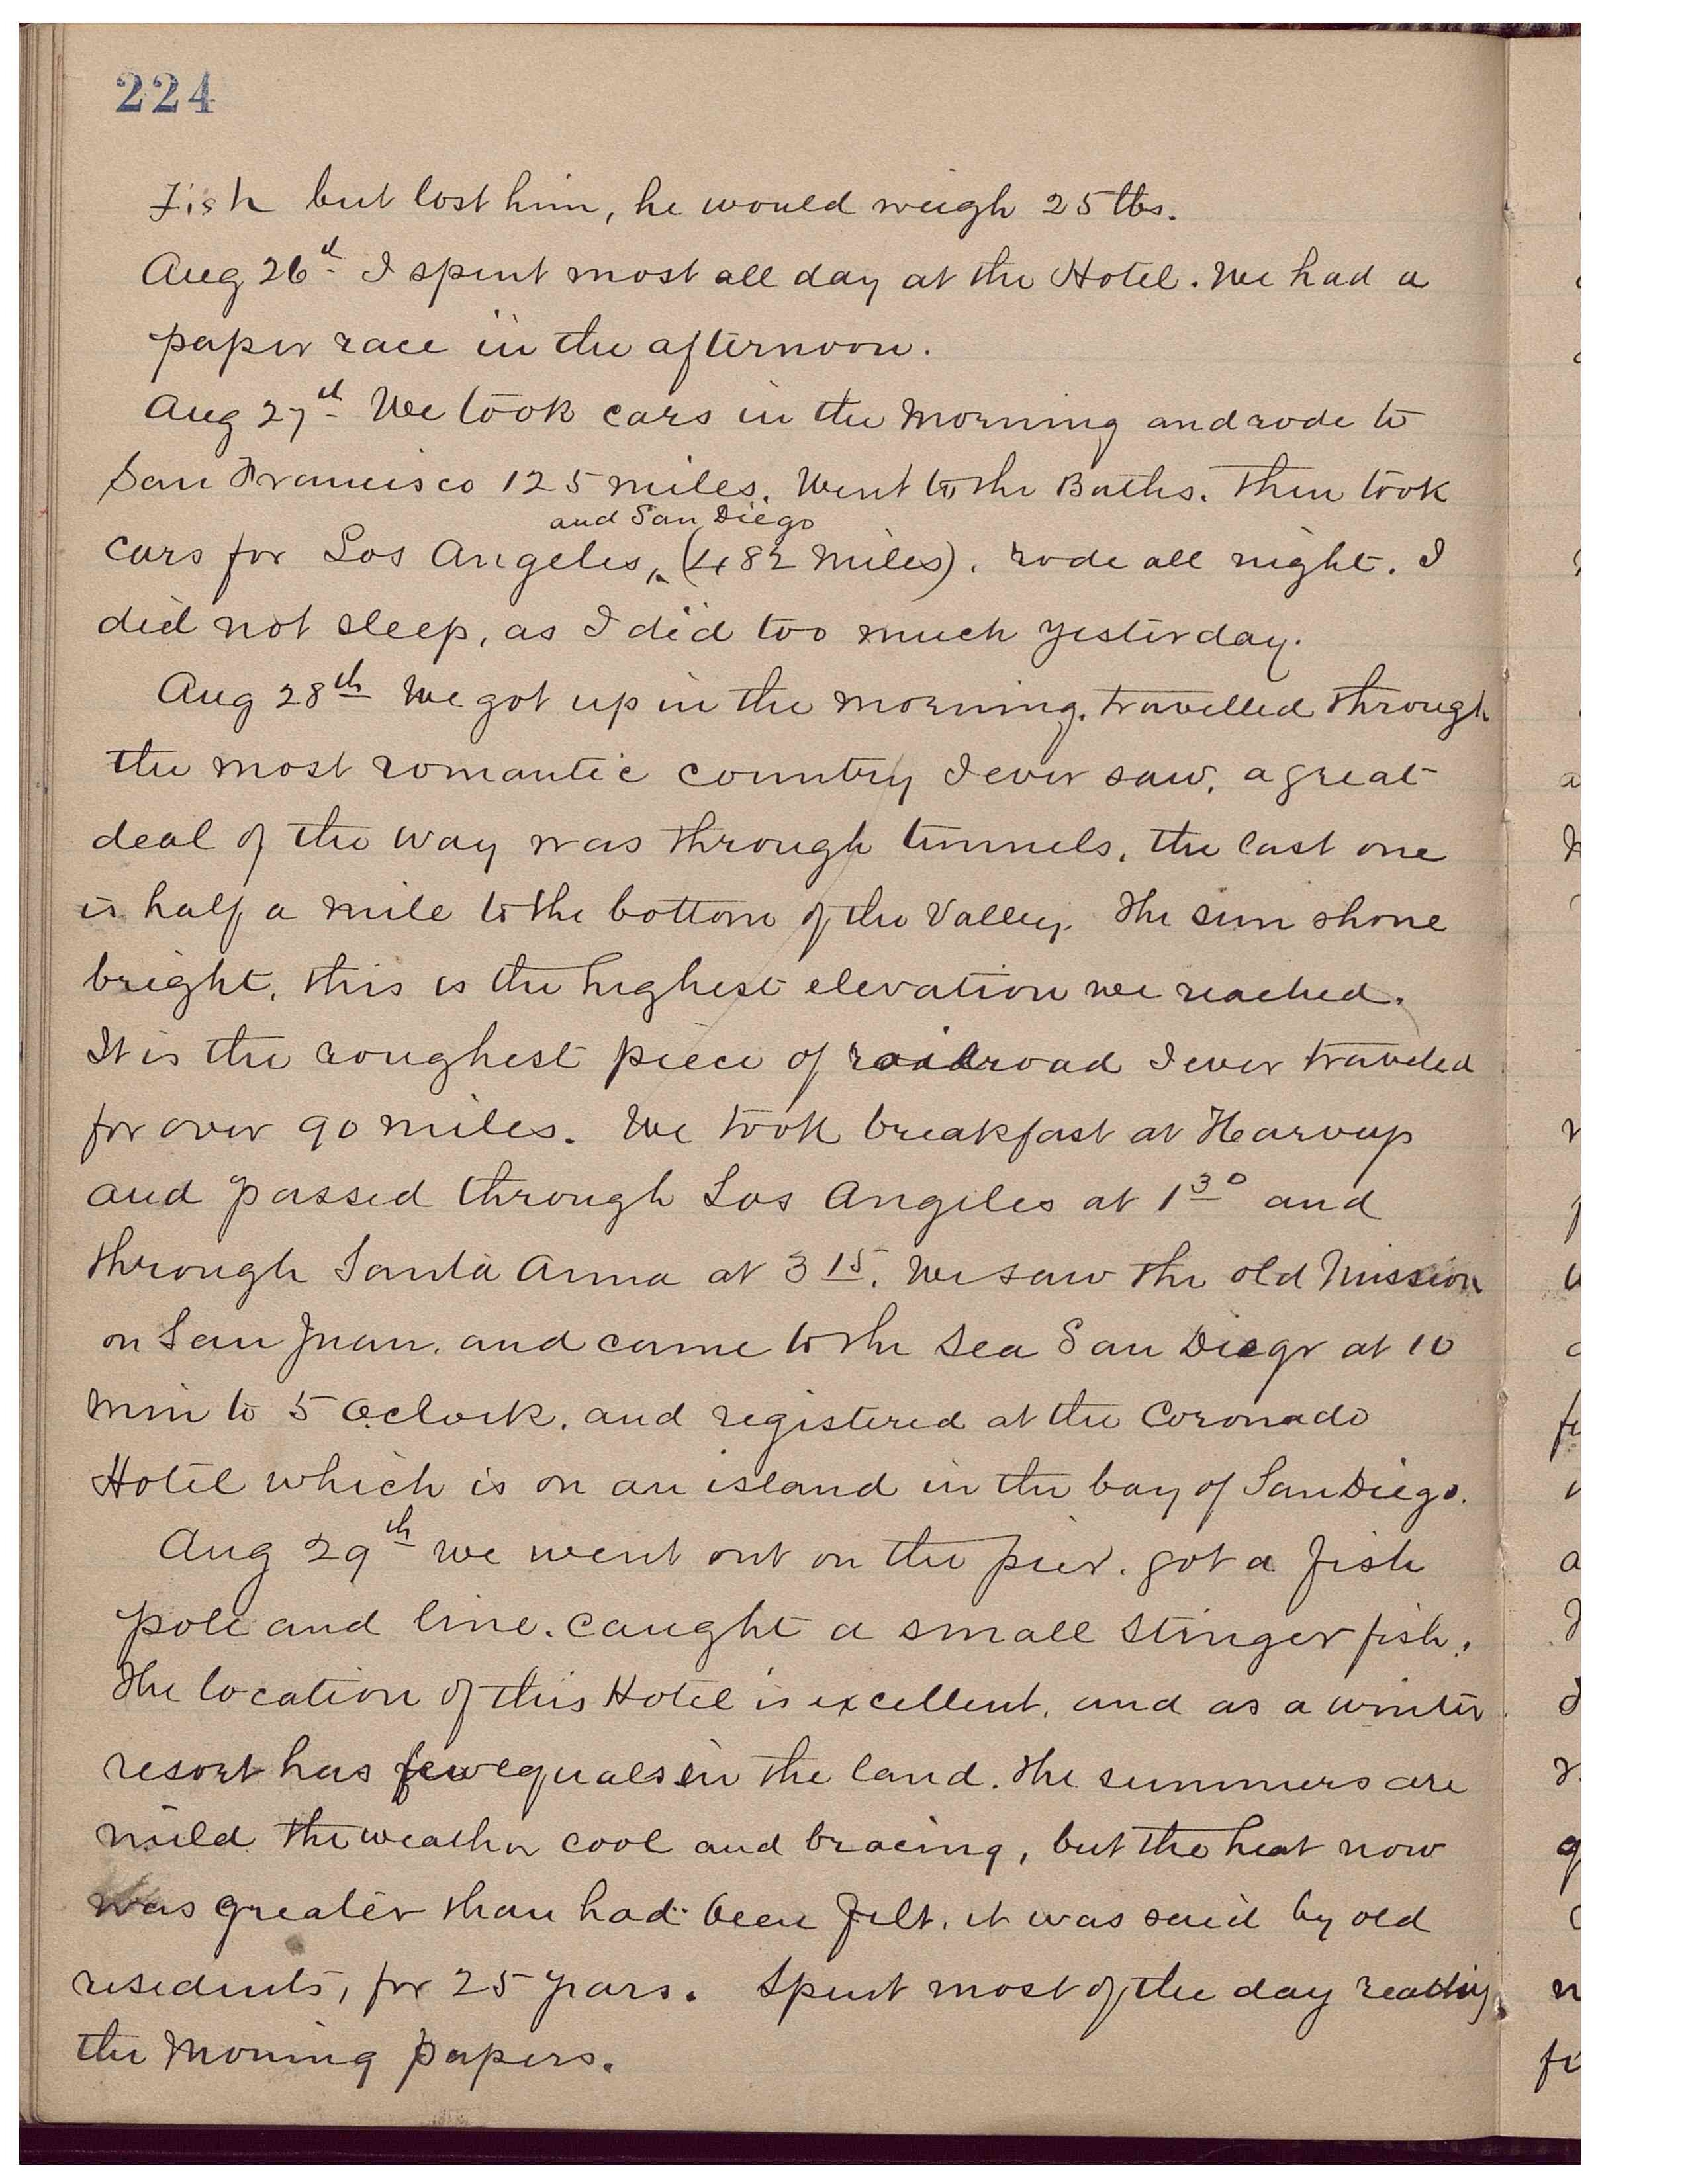 224
Fish but lost him, he would weigh 25 lbs.
Aug 26th I spent most all day at the Hotel. We had a
paper race in the afternoon.
Aug 27th We took cars in the morning and rode to
San Francisco 125 miles. Went to the Baths. Then took
and San Diego
cars for Los Angeles, (482 miles). rode all night. I
did not sleep, as I did too much yesterday.
Aug 28th We got up in the morning. travelled through
the most romantic country I ever saw, a great
deal of the way was through tunnels, the last one
is half a mile to the bottom of the Valley. The sun shone
bright, this is the highest elevation we reached.
It is the roughest piece of railroad I ever traveled
for over 90 miles. We took breakfast at
and passed through Los Angeles at 1 30 and
through Santa Anna at 3 15. We saw the old Mission
on San Juan, and came to the Sea San Diego at 10
min to 5 Oclock, and registered at the Coronado
Hotel which is on an island in the bay of San Diego.
Aug 29th we went out on the pier. got a fish
pole and line. caught a small stinger fish.
The location of this Hotel is excellent, and as a winter
resort has few equals in the land. The summers are
mild the weather cool and bracing, but the heat now
was greater than had been felt, it was said by old
residents, for 25 years. Spent most of the day reading
the Morning papers.